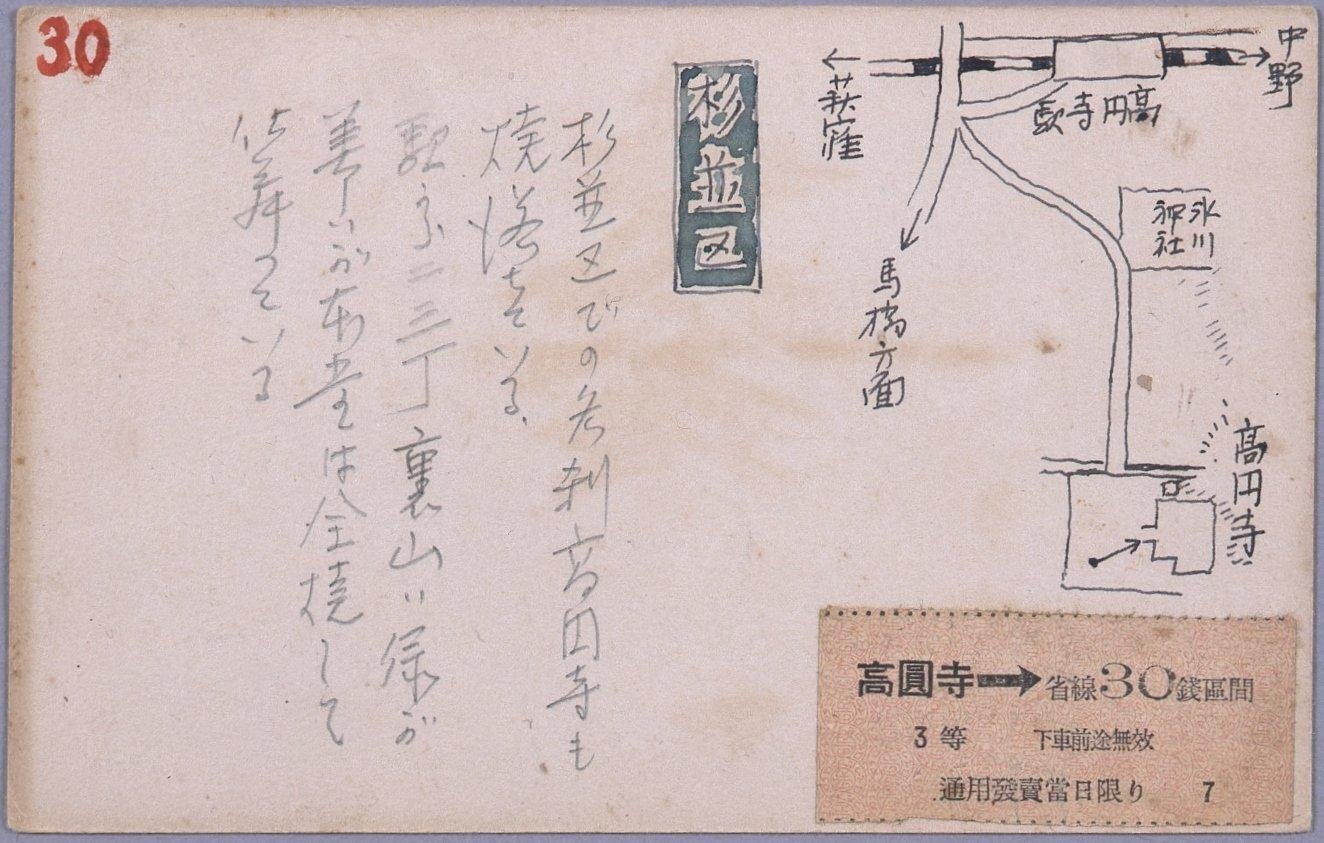 30
中野
高円寺駅
←荻窪
氷川
神社
馬橋方面
高円寺
杉並区
杉並区での名刹高円寺も
焼落ちている、
駅から二三丁裏山は緑が
美しいが本堂は全焼して
仕舞つている
高圓寺➡省線30錢區間
3等 下車前途無效
通用發賣當日限り 7